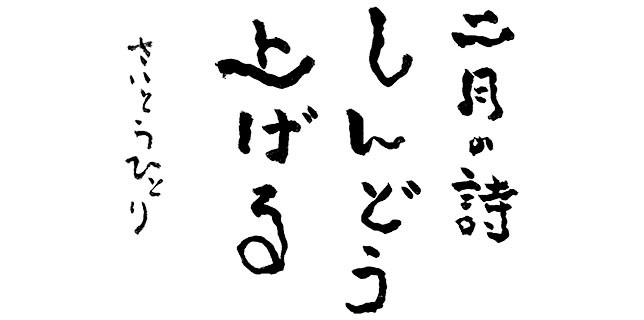 二月の詩
しんどう
上ばる
さいとうひとり